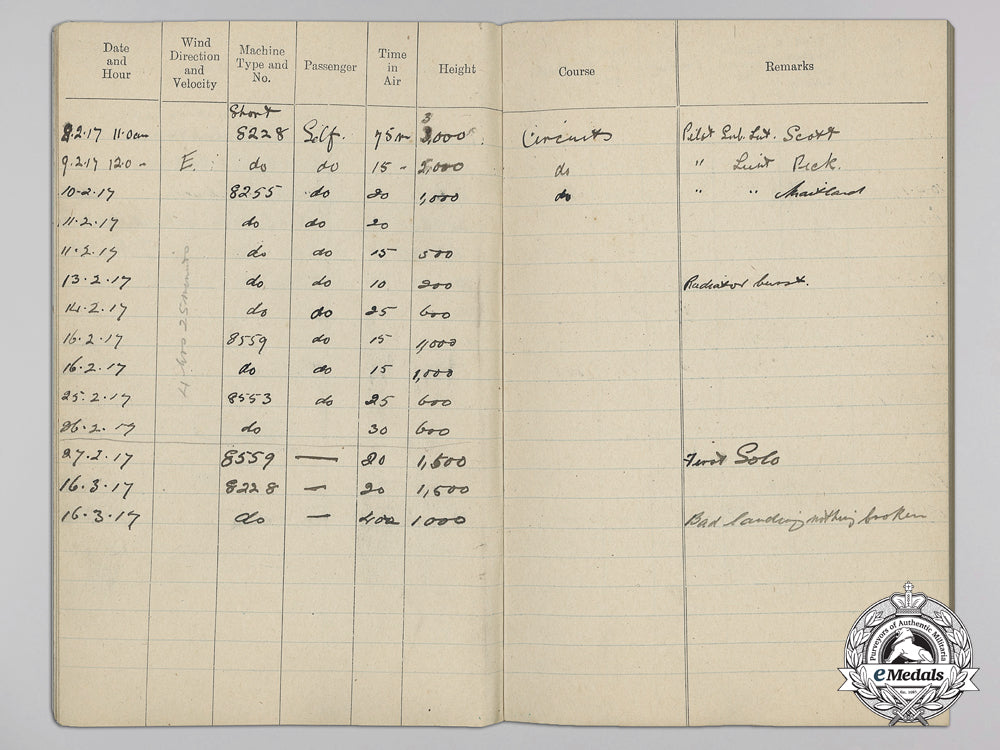 Date and Hour Wind Direction and Velocity Machine Type and No. Passenger Time in Air Height Course Remarks
Short
8.2.17 11.0am 8228 Self. 75m 3,000 Circuits Pilot Sub. Lut. Scott
9.2.17 12.0 - E. do do 15 - 2,000 do " Lieut Peck.
10-2.17 8255 do 20 1,000 do " " Maitland
11.2.17 do do 20
11.2.17 do do 15 500
13.2.17 do do 10 200 Radiator burst.
14.2.17 do do 25 600
16.2.17 8559 do 15 1,000
16.2.17 do do 15 1,000
25.2.17 8553 do 25 600
26.2.17 do 30 600
4 hrs 25 minutes
27.2.17 8559 — 20 1,500 First Solo
16.3.17 8228 — 20 1,500
16.3.17 do — 40 1000 Bad landing nothing broken
Purveyors of Authentic Militaria
eMedals